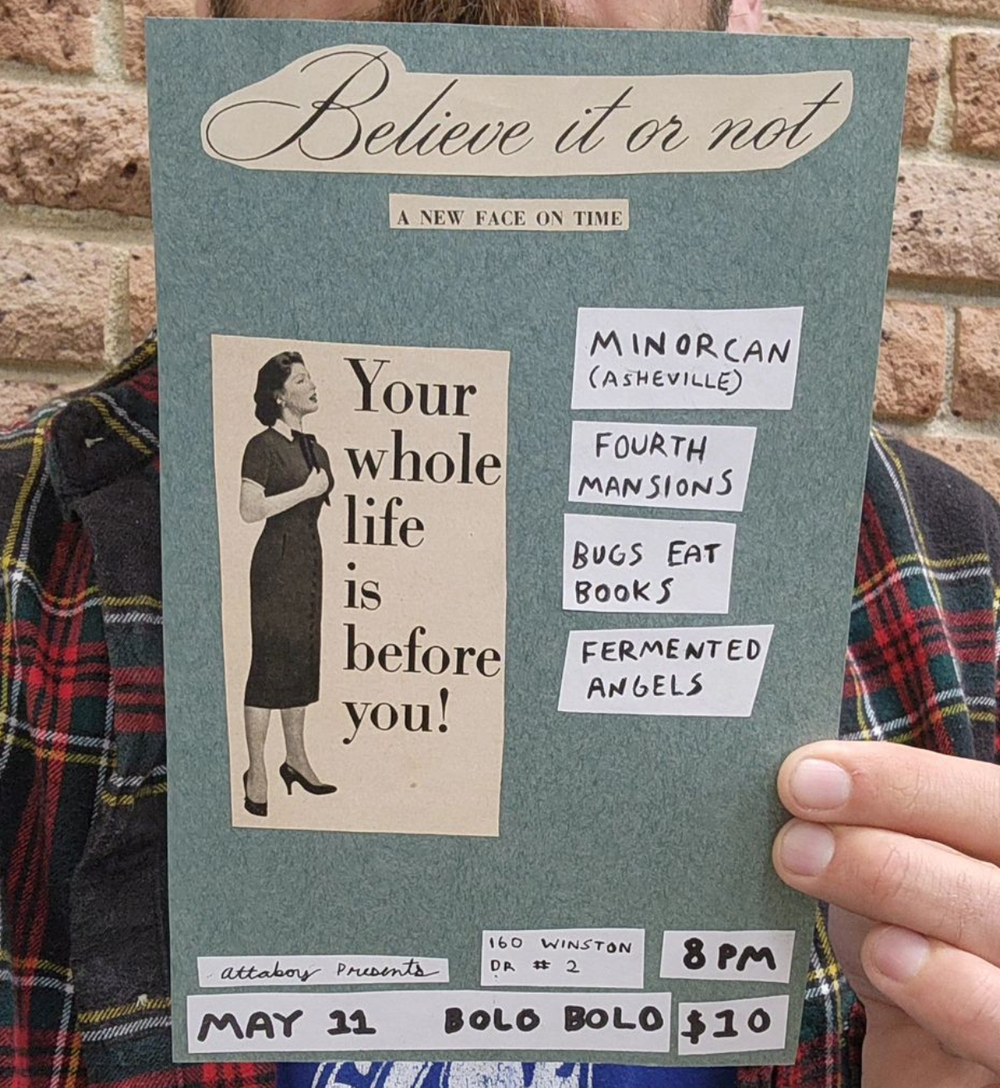 Believe it or not
A NEW FACE ON TIME
Your
whole
life
is
before
you!
MINORCAN
(ASHEVILLE)
FOURTH
MANSIONS
BUGS EAT
BOOKS
FERMENTED
ANGELS
attaboy Presents
160 WINSTON
DR # 2
8 PM
MAY 11 BOLO BOLO
$10